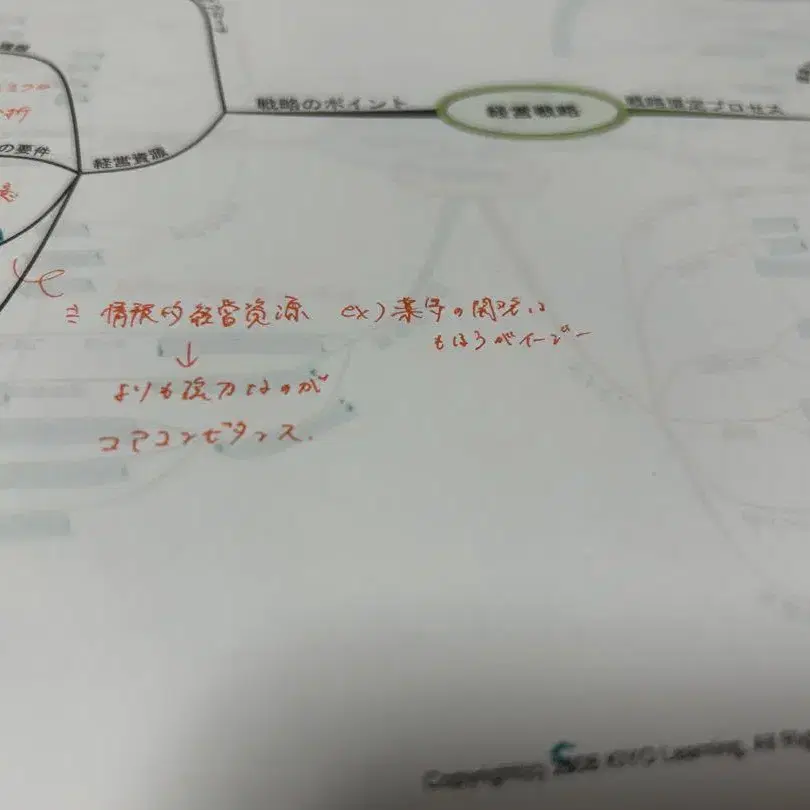 戦略のポイント
経営戦略
戦略策定プロセス
の要件
経営資源
≒ 情報的経営資源 ex) 薬等の開発は
もほうがイージー
↓
よりも強力なのが
コアコンピタンス.
Learning, All